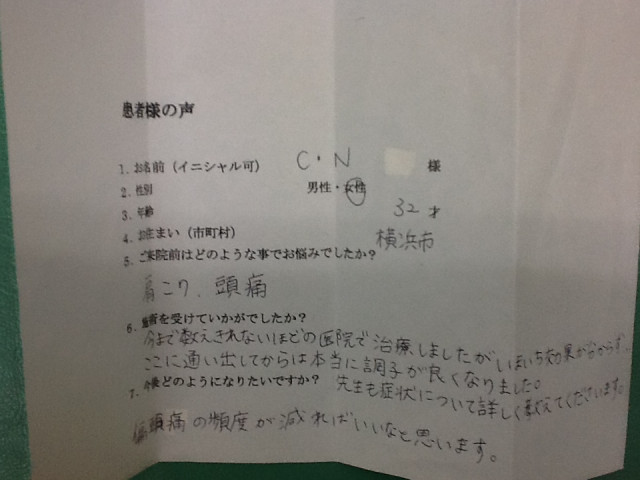 患者様の声
1. お名前（イニシャル可） C・N 様
2. 性別 男性・女性
3. 年齢 32 才
4. お住まい（市町村） 横浜市
5. ご来院前はどのような事でお悩みでしたか？
肩こり、頭痛
6. 施術を受けていかがでしたか？
今まで数えきれないほどの医院で治療しましたがいまいち効果が分からず、
ここに通い出してからは本当に調子が良くなりました。
先生も症状について詳しく教えてくださいます。
7. 今後どのようになりたいですか？
偏頭痛の頻度が減ればいいなと思います。